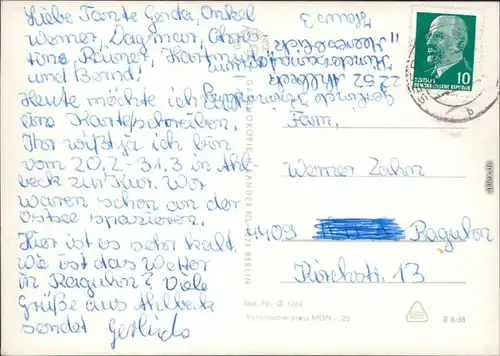 Liebe Tante Gerda, Onkel
Werner, Dagmar, Chris
tine, Rainer,
und Bernd!
Heute möchte ich
eine Karte schreiben.
Ihr wißt ja ich bin
vom 20.2.-31.3 in Ahl-
beck zur Kur. Wir
waren schon an der
Ostsee spazieren.
Hier ist es sehr kalt.
Wie ist das Wetter
in Raguhn? Viele
Grüße aus Ahlbeck
sendet Gerlinde
2252 Ahlbeck
"Meeresblick"
Haus 3
DEUTSCHE
DEMOKRATISCHE REPUBLIK
10
Fam.
Werner Zahn
4409 Raguhn
Kirchstr. 13
BERLIN
Best.-Nr. G 1064
Verbraucherpreis MDN -,25
B 8/68